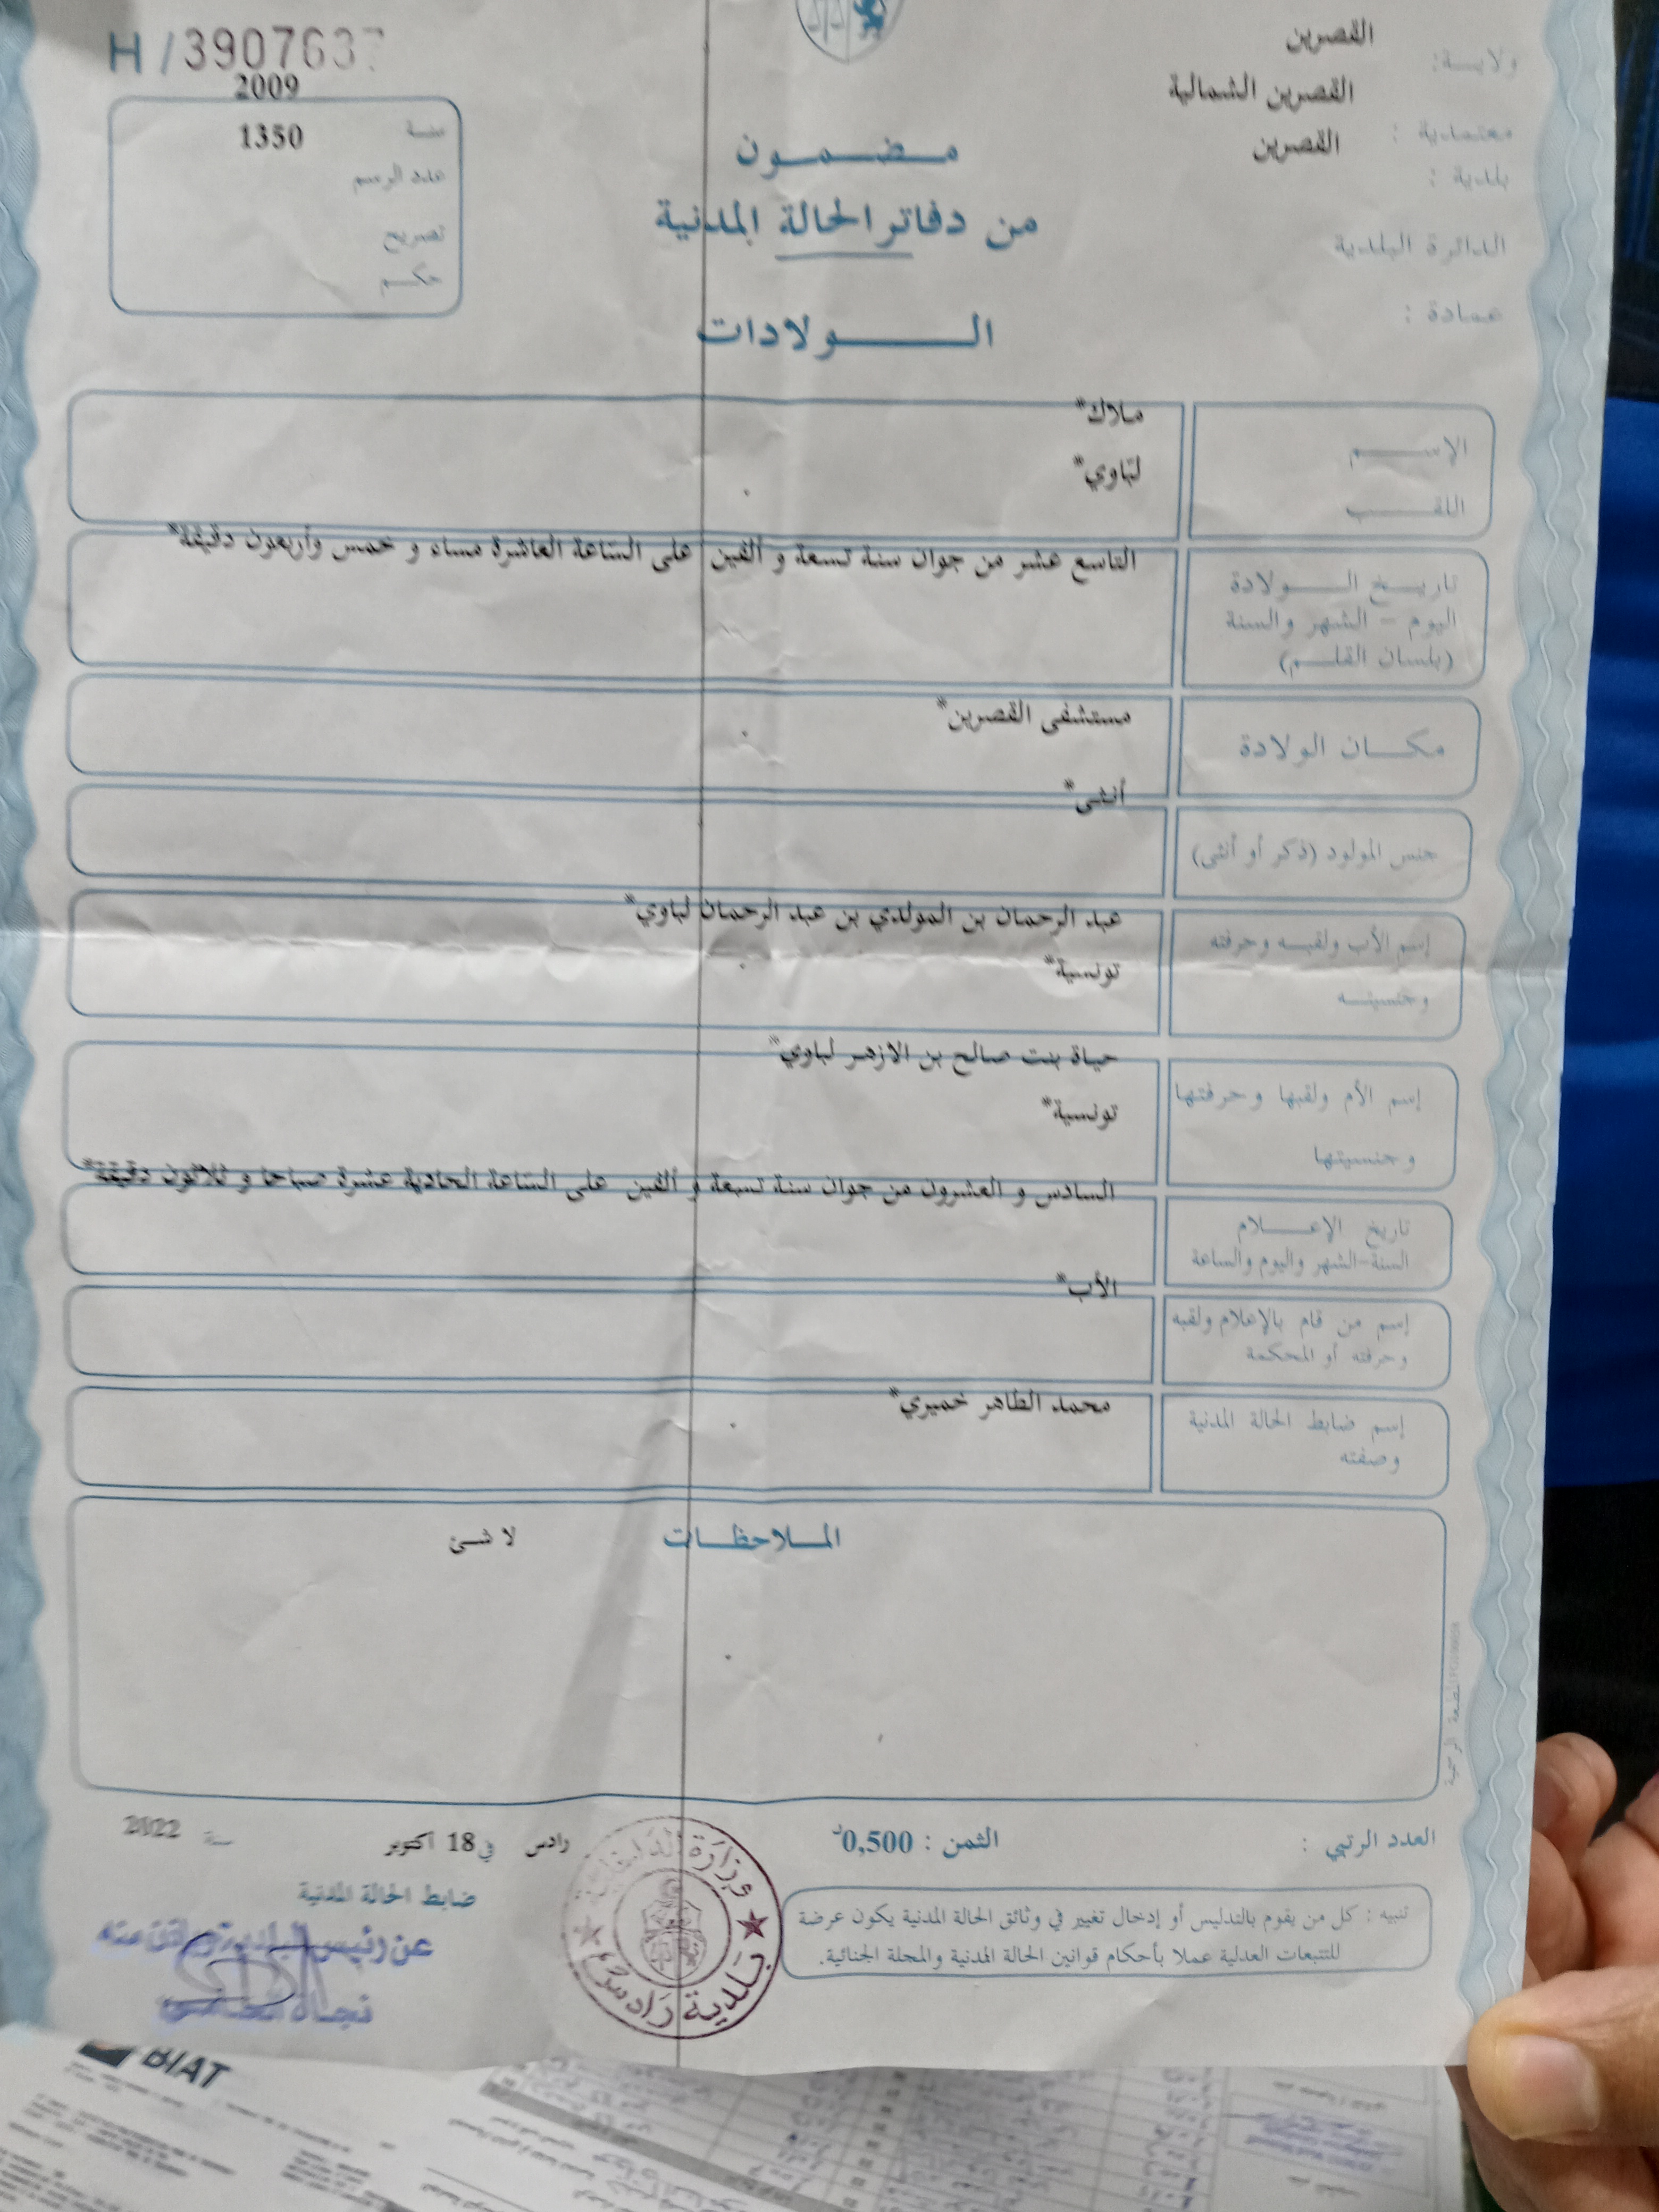 H/3907637
2009
سنة 1350
عدد الرسم
تصريح
حكم
ولاية: القصرين
معتمدية : القصرين الشمالية
بلدية : القصرين
الدائرة البلدية
عمادة :
مضمون
من دفاتر الحالة المدنية
الولادات
الإسم ملاك*
اللقب لبّاوي*
تاريخ الولادة
اليوم - الشهر والسنة
(بلسان القلم)
التاسع عشر من جوان سنة تسعة و ألفين على الساعة العاشرة مساء و خمس وأربعون دقيقة*
مكان الولادة مستشفى القصرين*
جنس المولود (ذكر أو أنثى) أنثى*
إسم الأب ولقبه وحرفته
وجنسيته
عبد الرحمان بن المولدي بن عبد الرحمان لباوي*
تونسية*
إسم الأم ولقبها وحرفتها
وجنسيتها
حياة بنت صالح بن الازهر لباوي*
تونسية*
تاريخ الإعلام
السنة-الشهر واليوم والساعة
السادس و العشرون من جوان سنة تسعة و ألفين على الساعة الحادية عشرة صباحا و ثلاثون دقيقة*
إسم من قام بالإعلام ولقبه
وحرفته أو المحكمة
الأب*
إسم ضابط الحالة المدنية
وصفته
محمد الطاهر خميري*
الملاحظات لا شئ
العدد الرتبي :
الثمن : 0,500د
رادس في 18 اكتوبر سنة 2022
ضابط الحالة المدنية
عن رئيس البلدية وبإذن منه
نجاة
بلدية رادس
تنبيه : كل من يقوم بالتدليس أو إدخال تغيير في وثائق الحالة المدنية يكون عرضة
للتتبعات العدلية عملا بأحكام قوانين الحالة المدنية والمجلة الجنائية.
BIAT